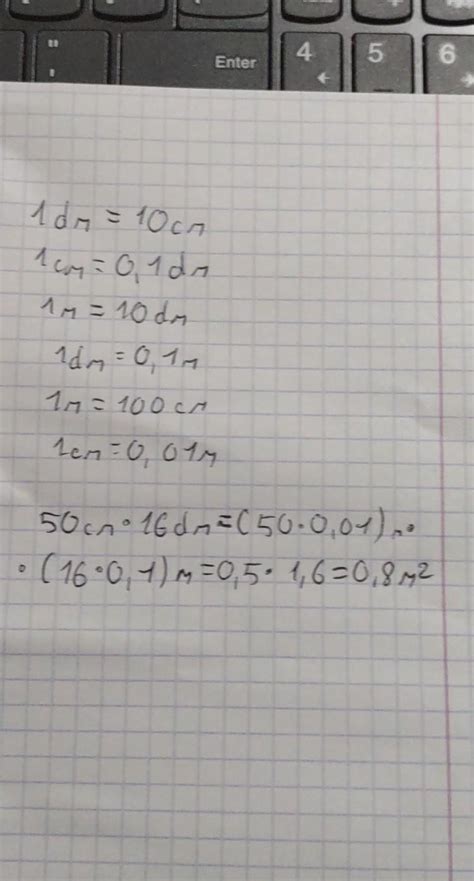 " Enter 4 5 6
1dm = 10cm
1cm = 0,1dm
1m = 10dm
1dm = 0,1m
1m = 100cm
1cm = 0,01m
50cm · 16dm = (50 · 0,01)m ·
· (16 · 0,1)m = 0,5 · 1,6 = 0,8m²